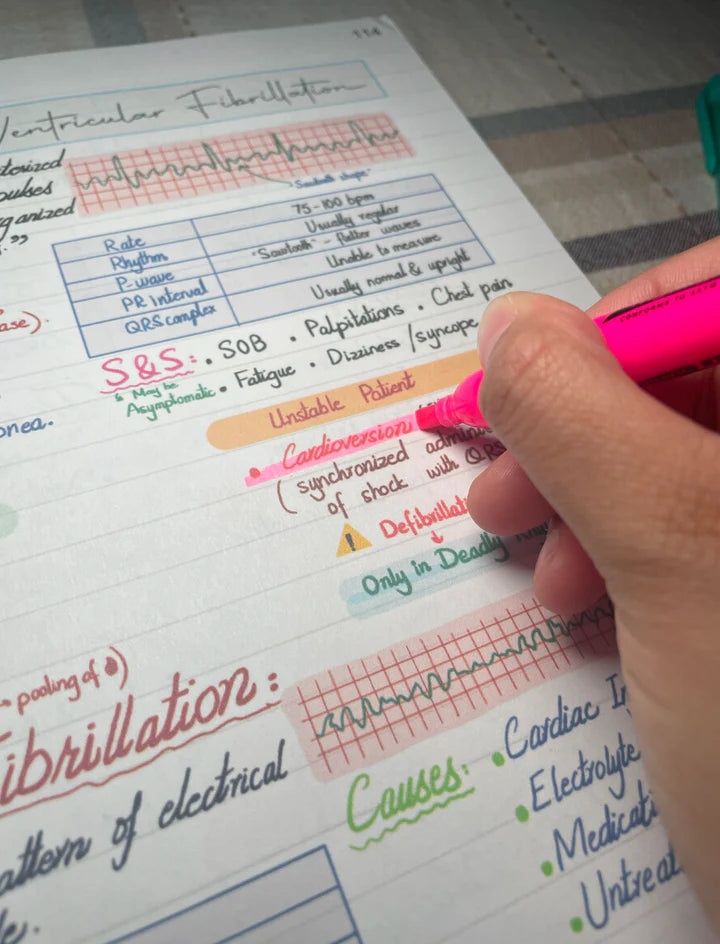 114
Ventricular Fibrillation
pulses
ganized
"Sawtooth shape"
Rate 75-100 bpm
Rhythm Usually regular
P-wave "Sawtooth" - flutter waves
PR Interval Unable to measure
QRS complex Usually normal & upright
ase).
S&S: • SOB • Palpitations • Chest pain
May be Asymptomatic • Fatigue • Dizziness / syncope
Unstable Patient
onea.
• Cardioversion
(synchronized admin
of shock with QRS
! Defibrillati
Only in Deadly
→ pooling of )
ibrillation:
attern of electrical
le.
Causes: • Cardiac I
• Electrolyte
• Medicati
• Untreat
CONFORMS TO ASTM